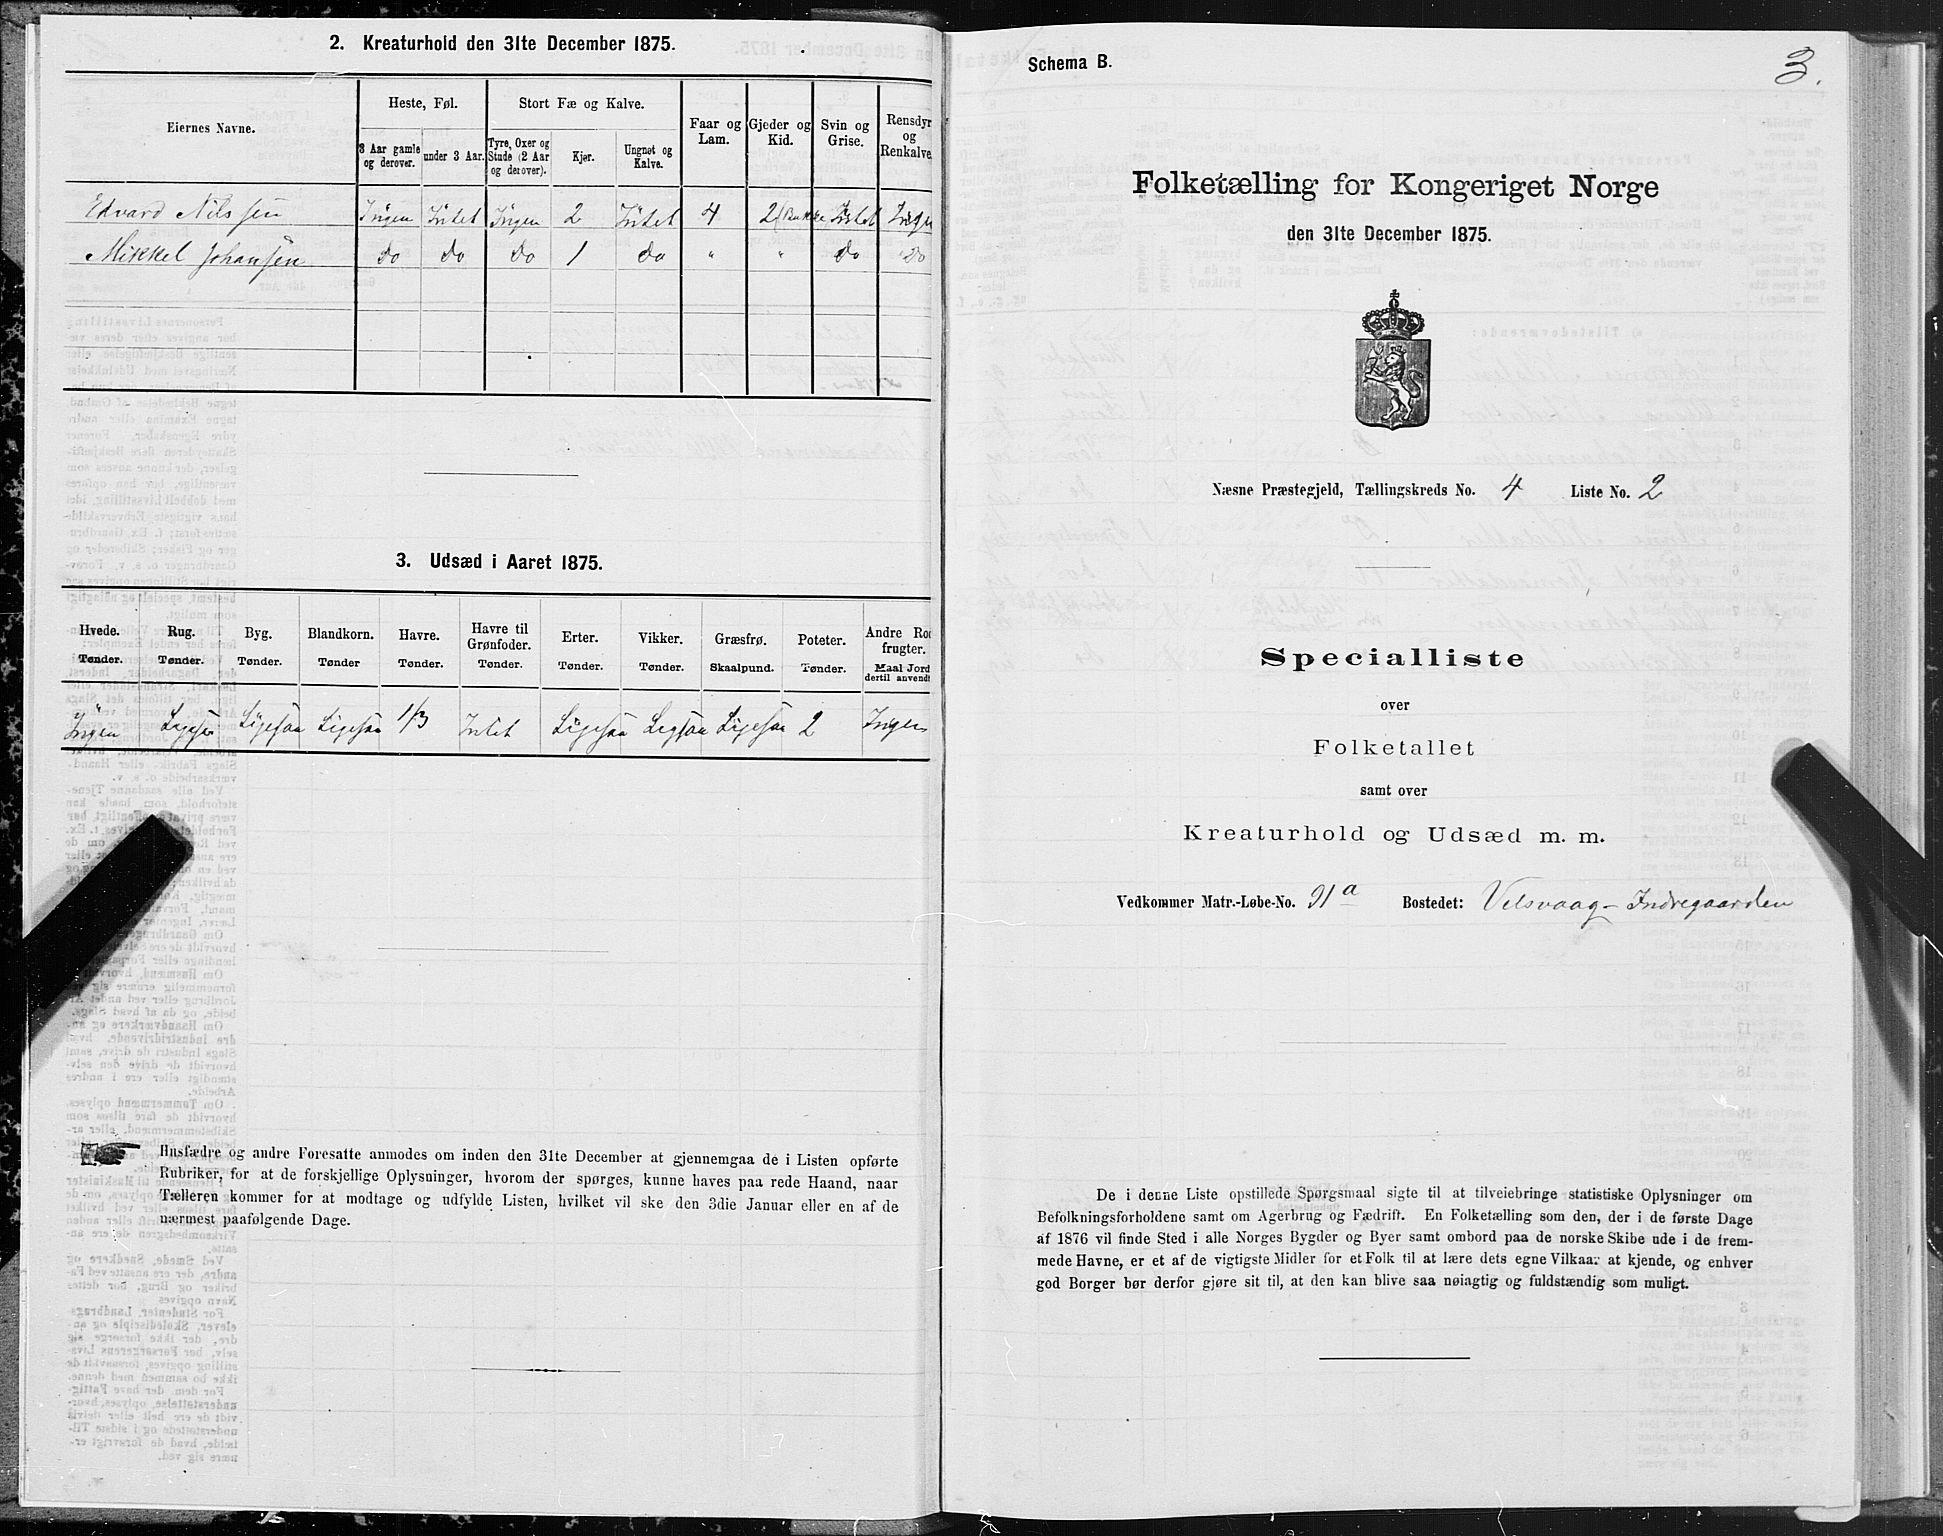 2. Kreaturhold den 31te December 1875.
Eiernes Navne.
Heste, Føl.
Stort Fæ og Kalve.
Faar og Lam.
Gjeder og Kid.
Svin og Grise.
Rensdyr og Renkalve.
3 Aar gamle og derover.
under 3 Aar.
Tyre, Oxer og Stude (2 Aar og derover).
Kjør.
Ungnøt og Kalve.
Edvard Nilssen Ingen Intet Ingen 2 Intet 4 2 (Bukke Intet Ingen
Mikkel Johansen do do do 1 do " " do do
3. Udsæd i Aaret 1875.
Hvede. Tønder.
Rug. Tønder.
Byg. Tønder.
Blandkorn. Tønder
Havre. Tønder.
Havre til Grønfoder. Tønder.
Erter. Tønder.
Vikker. Tønder.
Græsfrø. Skaalpund.
Poteter. Tønder.
Andre Rod frugter. Maal Jord dertil anvendt
Ingen Ligesaa Ligesaa 1/3 Intet Ligesaa Ligesaa 2 Ingen
Husfædre og andre Foresatte anmodes om inden den 31te December at gjennemgaa de i Listen opførte
Rubriker, for at de forskjellige Oplysninger, hvorom der spørges, kunne haves paa rede Haand, naar
Tælleren kommer for at modtage og udfylde Listen, hvilket vil ske den 3die Januar eller en af de
nærmest paafølgende Dage.
Schema B.
3.
Folketælling for Kongeriget Norge
den 31te December 1875.
Næsne Præstegjeld, Tællingskreds No. 4 Liste No. 2
Specialliste
over
Folketallet
samt over
Kreaturhold og Udsæd m. m.
Vedkommer Matr.-Løbe-No. 91a Bostedet: Velsvaag - Indregaarden
De i denne Liste opstillede Spørgsmaal sigte til at tilveiebringe statistiske Oplysninger om
Befolkningsforholdene samt om Agerbrug og Fædrift. En Folketælling som den, der i de første Dage
af 1876 vil finde Sted i alle Norges Bygder og Byer samt ombord paa de norske Skibe ude i de frem-
mede Havne, er et af de vigtigste Midler for et Folk til at lære dets egne Vilkaar at kjende, og enhver
god Borger bør derfor gjøre sit til, at den kan blive saa nøiagtig og fuldstændig som muligt.